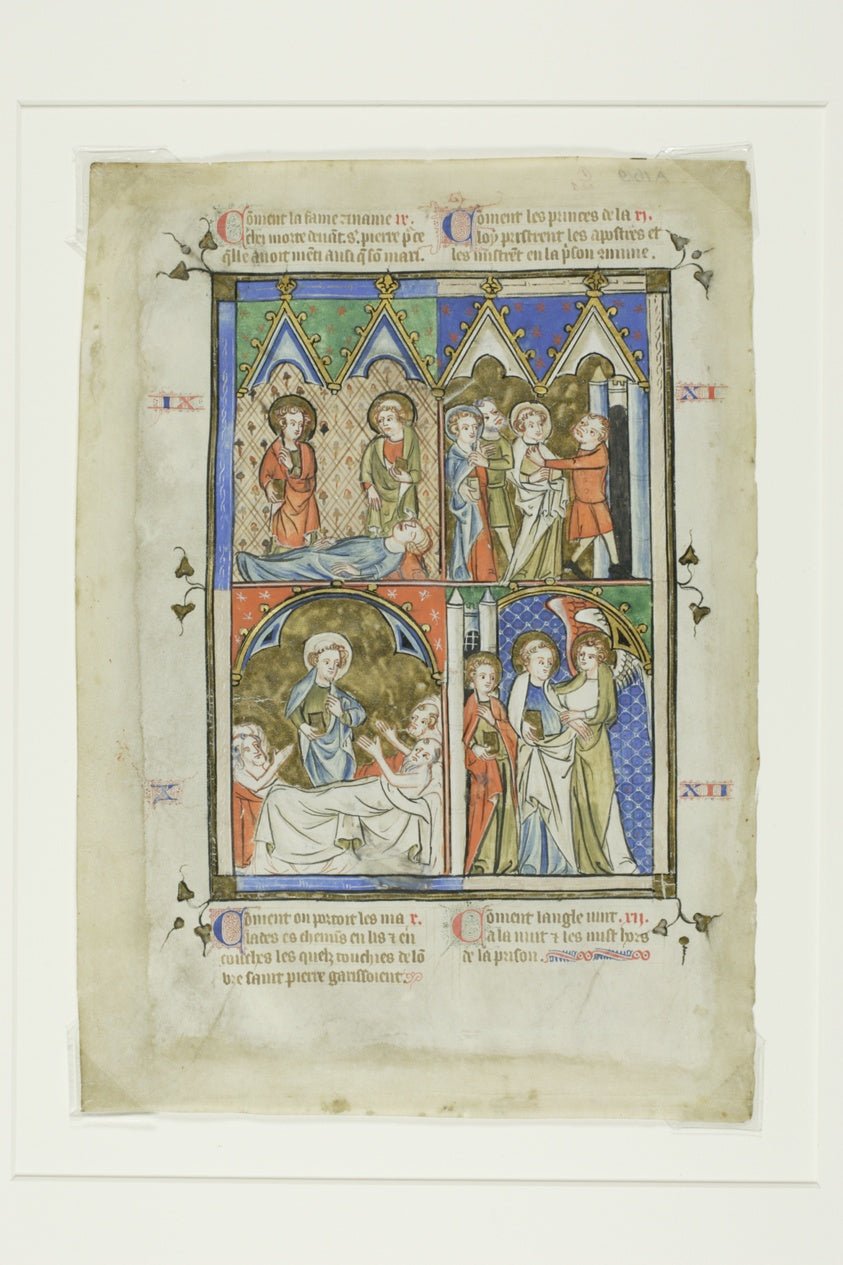 Cõment la fame ⁊名ame .ix.
chei morte deuãt .s᷑. pierre p̃ ce
q̃lle auoit mẽti ausi q̃ sõ mari.
Coment les princes de la .xi.
loy pristrent les apostres et
les mistrẽt en la p̃son
IX
XI
X
XII
Cõment on portoit les ma .x.
lades es chemĩs en lis ⁊ en
couches les quelz touchies de lõ
bre saint pierre garissoient.
Cõment langle uint .xii.
a la nuit ⁊ les mist hors
de la prison.